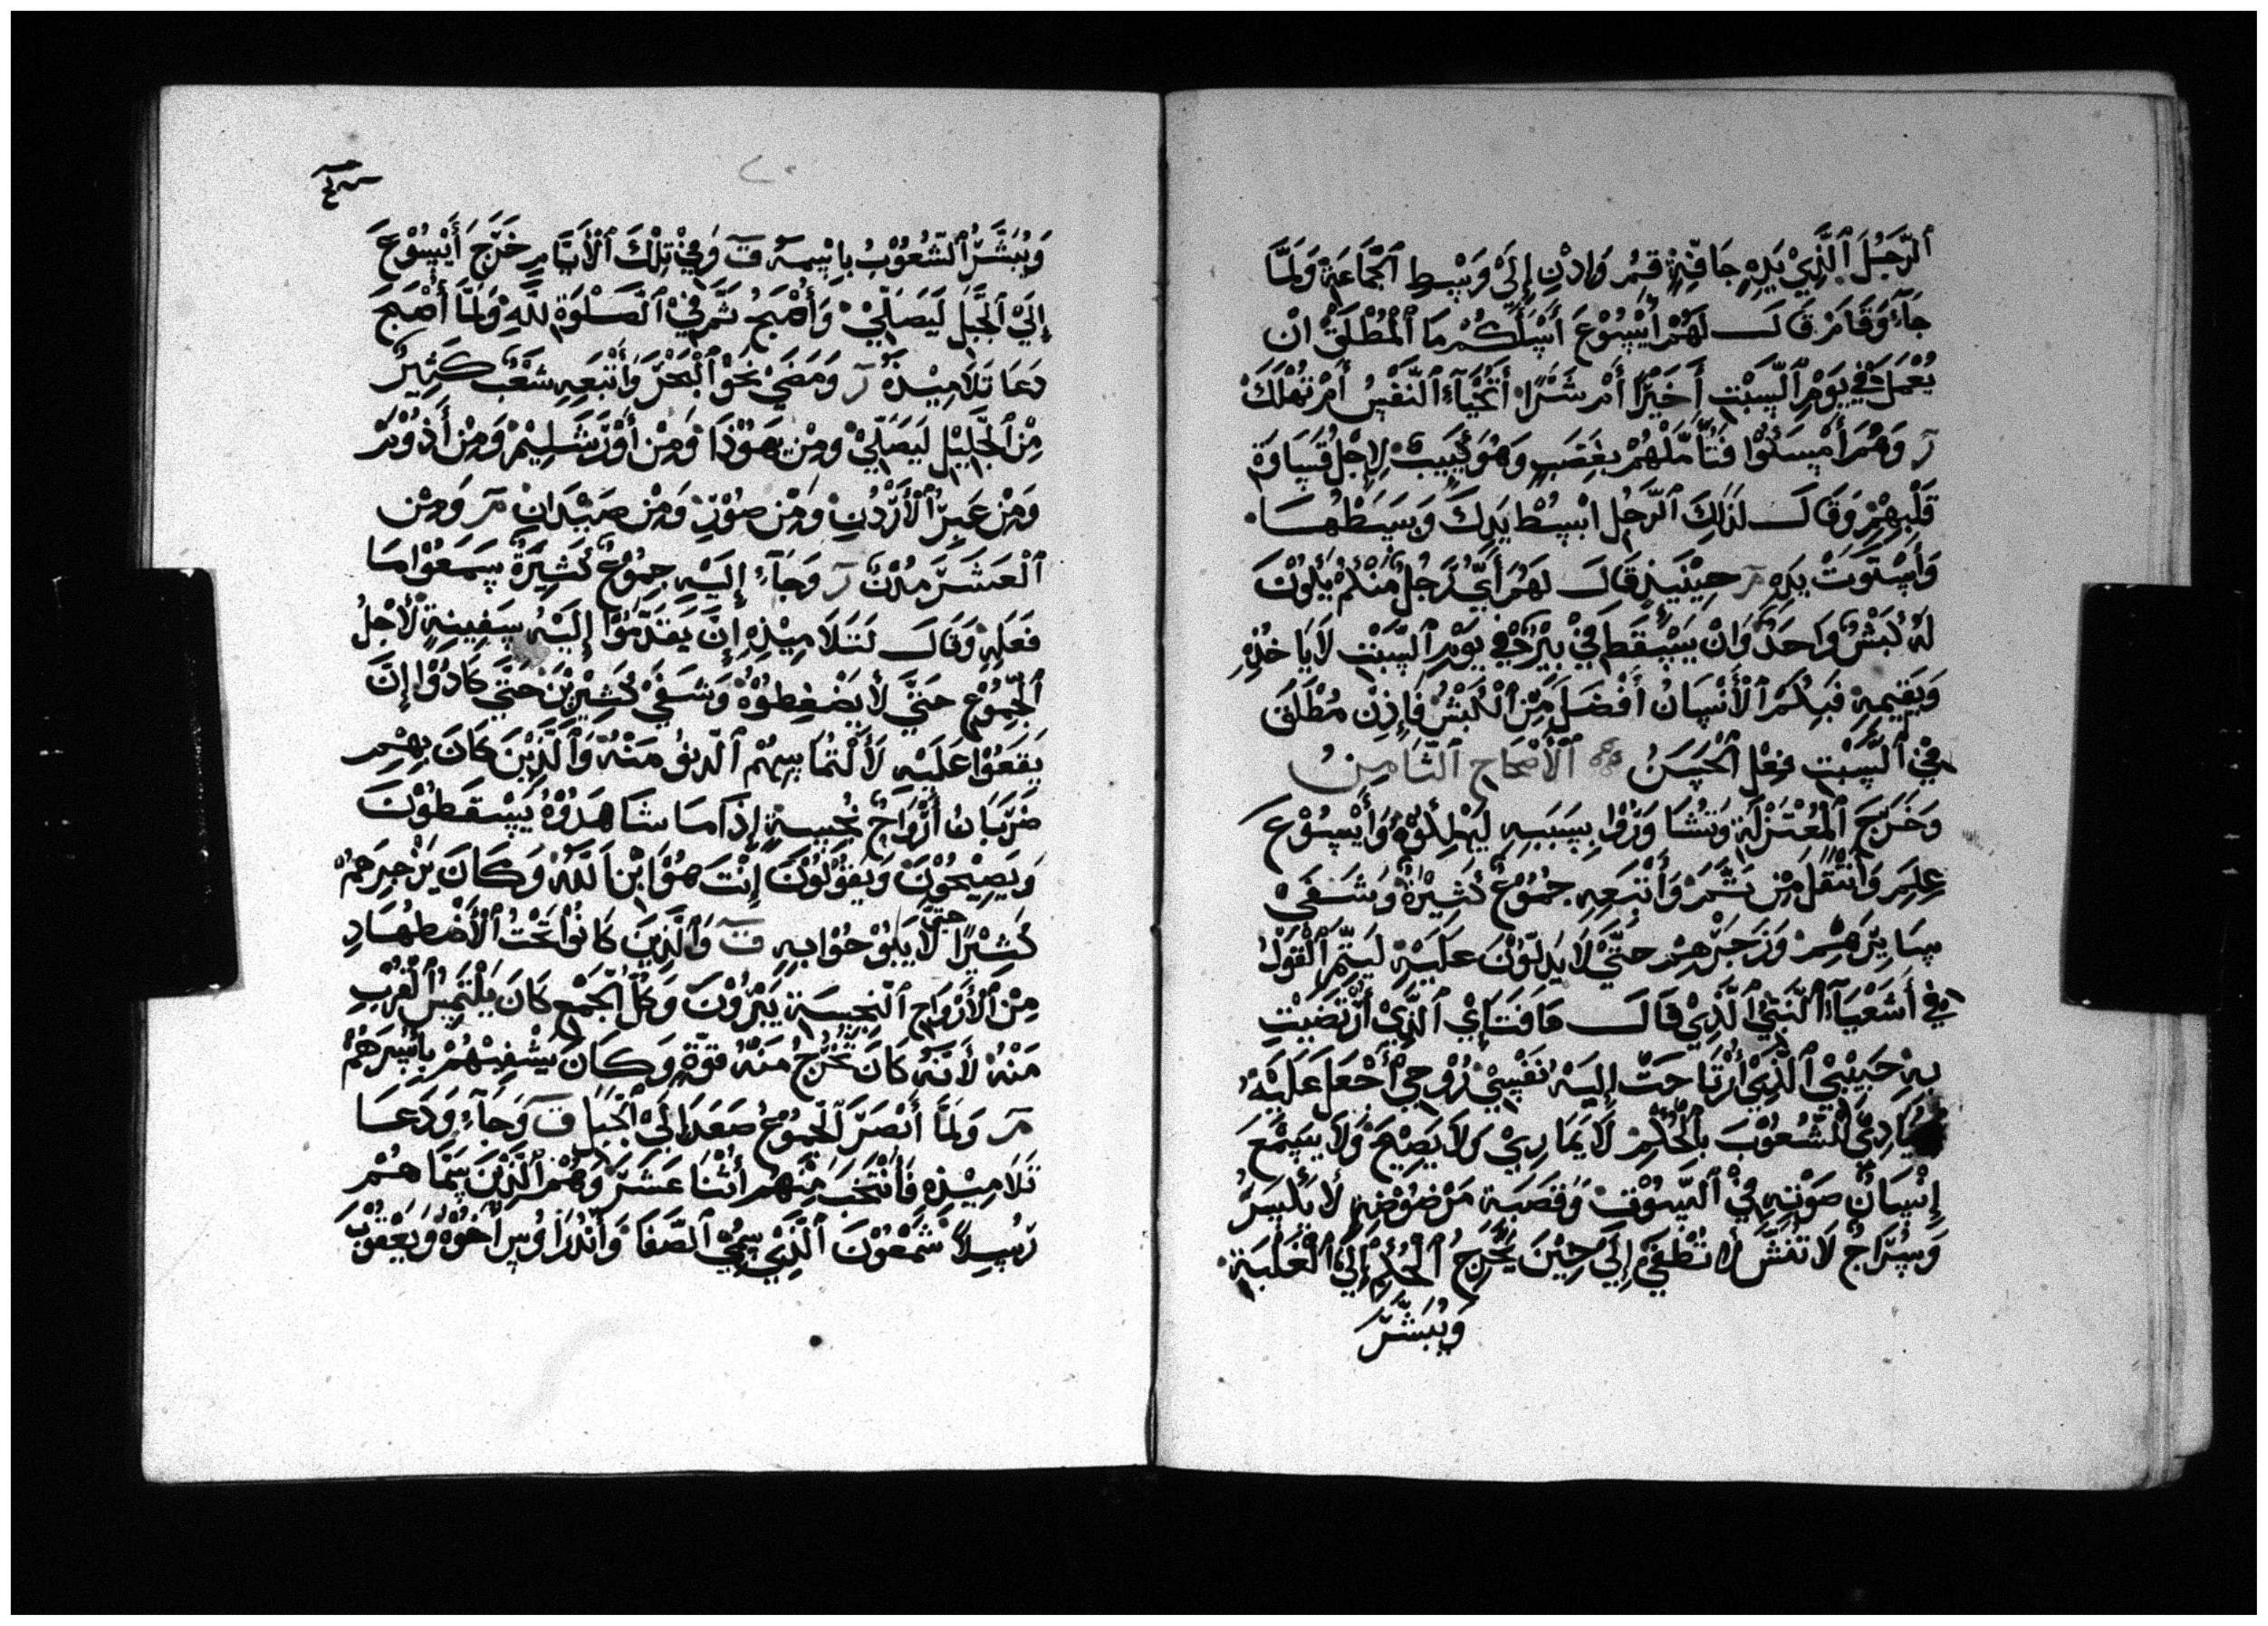 ٱلرَّجُلَ ٱلَّذِيْ يَدِهِ جَافِّةٍ قِمُر وَادْنِ إِلَىْ وَبْسِطِ ٱلْجَمَاعَةِ وَلَمَّا
جَآءَ وَقَامَرْ قَالَ لَهُمْ أَيْسُوْعَ أَسْلَكُمْ مَا ٱلْمُطْلَقْ انْ
يُعْمَلَ فِيْ يَوْمِ ٱلسَّبْتِ أَخَيْرًا أَمْ شَرًّا أَتُحْيَآءِ ٱلنَّفْسُ أَمْ تُهْلَكَ
ر وَهُمْ أَمْسَكُوْا فَتَأَمَّلْهُمْ بِغَضَبٍ وَهُوَ كَيِيبٌ لِاجْلِ قَسَاوَةِ
قَلْبِهِمْ وَقَالَ لِذٰلِكَ ٱلرَّجُلِ ابْسُطْ يَدِكَ وَبَسَطْهَا
وَأَسْتَوَتْ يَدِهِ مر حِيْنَيِذٍ قَالَ لَهُمْ أَيُّ رَجُلٍ مِنْكُمْ يَكُوْنَ
لَهُ كَبْشٌ وَاحَدٌ وَانْ يَسْقَطَ فِيْ بِيْرٍ فِيْ يَوْمِ ٱلسَّبْتِ لَايَاخُذِهِ
وَيَقِيمِهِ فَبِكُمْ ٱلْأَنْسَانُ أَفْضَلَ مِنَ ٱلْكَبْشُ فَإِذِنْ مُطْلَقَ
فِيْ ٱلسَّبْتِ فِعْلِ ٱلْحَسَنُ ٱلْأَصْحَاحِ ٱلثَّامِنُ
وَخَرَجَ ٱلْمُعْتَزِلَةِ وَتُشَاوَرُوْا بِسَبَبِهِ لِيُهْلِكُوْهُ وَأَيْسُوْعَ
عِلِمَ وَأَنْتَقَلَ مِنْ ثَمَّرَ وَأَتْبَعِهِ جُمُوْعٌ كَثِيْرَةٌ وَشَفَىْ
سَايِرَهِمْ وَزَجَرَهِمْ حَتَّىْ لَا يَدِلُّوْنَ عَلَيْهِ لِيَتِمَّ ٱلْقَوْلُ
فِيْ أَشَعْيَآءَ ٱلنَّبِيِّ ٱلَّذِيْ قَالَ هَا فَتَاىِٔ ٱلَّذِيْ أَرْتَضَيْتِ
بِهِ حَبِيْبِيْ ٱلَّذِيْ أَرْتَاحَتْ إِلَيْهُ نَفْسِيْ رُوْحِيْ أَجْعَلَ عَلَيْهُ
يُنَادِيْ ٱلشُّعُوْبَ بِٱلْحُكْمِ لَا يُمَارِيْ وَلَا يَصِيْحَ وَلَا يَسْمَعَ
إِنْسَانٌ صَوْتِهِ فِيْ ٱلسُّوْقِ وَقَصَبَةٍ مَرْضُوْضِةٍ لَا يُكْسِرُ
وَسُرَاجٌ لَا تُنَشَّ لَا تُطْفَىْ إِلَىْ حِيْنَ يُخْرِجُ ٱلْحُكْمِ إِلَىْ ٱلْغَلَبَةِ
وَيُبَشَّرَ
وَيُبَشَّرُ ٱلشُّعُوْبُ بِاسْمِهِ ت وَفِيْ تِلْكَ ٱلْأَيَّامِ خَرَّجَ أَيْسُوْعَ
إِلَىْ ٱلْجَّبَلِ لَيَصَلِّيْ وَأَصْبَحُ ثَمَّ فِيْ ٱلصَّلٰوةِ لِلّٰهِ وَلَمَّا أَصْبَحَ
دَعَا تَلَامِيْذِهُ ر وَمَضَىْ نَحْوَ ٱلْبَحْرَ وَأَتْبَعِهِ شَعْبٌ كَثِيْرٌ
مِنَ ٱلْجَّلِيْلِ لَيَصَلِّيْ وَمِنْ يَهَوْذَا وَمِنْ أَوْرَشَلِيْمَ وَمِنْ أَذُوْمَ
وَمِنْ عَبِرِ ٱلْأُرْدُنِ وَمِنْ صُوْرِ وَمِنْ صَيْدَانِ مر وَمِنْ
ٱلْعَشَرَ مُدُنٌ ر وَجَآءَ إِلَيْهِ جِمُوْعٌ كَثِيْرَةٌ سَمَعُوْا مَا
فَعَلِهِ وَقَالَ لَتَلَامِيْذِهِ إِنَّ يَقَدَّمُوْا إِلَيْهُ سَفِيْنِةٍ لَأَجْلُ
ٱلْجِمُوْعِ حَتَّىْ لَا يَضْغِطُوْهْ وَشَفَىْ كَثِيْرِيْنَ حَتَّىْ كَادُوْا إِنَّ
يَقَعَوْا عَلَيْهِ لَأَلْتُمَاسِهُمْ ٱلدِنُوْ مَنْهُ وَٱلَّذِيْنَ كَانَ بِهِمْ
ضَرَبَانُ أَرْوَاحٌ نُجِسِةٍ إِذَا مَا شَاهَدُوْهُ يَسْقَطُوْنَ
وَيَصِيْحُوْنَ وَيَقُوْلُوْنَ إِنْتَ هُوَ ابْنُ ٱللّٰهْ وَكَانَ يَزْجِرَهُمْ
كَثِيْرًا حَتَّىْ لَا يَبُوْحُوْا بِهِ ت وَٱلَّذِيْنَ كَانُوْا تَحْتُ ٱلْأَضْطِهَادِ
مِنَ ٱلْأَرْوَاحِ ٱلنَجِسَةِ يَبْرُوْنَ وَكُلُّ ٱلْجَمْعِ كَانَ يَلْتَمِسُ ٱلْقُرْبِ
مَنْهُ لَأَنَّهُ كَانَ تَخْرُجُ مَنْهُ قُوَّةِ وَكَانَ يَشْفِيْهُمْ بِأَسْرَهُمْ
مر وَلَمَّا أَنْصَرَ ٱلْجِمُوْعُ صَعَدَ إِلَىْ ٱلْجَبَلِ ق وَجَآءِ وَدَعَا
تَلَامِيْذِهِ فَأَنْتَخَبَ مِنْهُمْ أَثْنَا عَشَرَ وَهُمْ ٱلَّذِيْنَ سَمَّا هُمْ
رَسِلًا شَمْعُوْنَ ٱلَّذِيْ سِمِّيْ ٱلصَّفَا وَأَنْدُرَاوُسِ أَخُوْهُ وَيَعْقُوْبَ